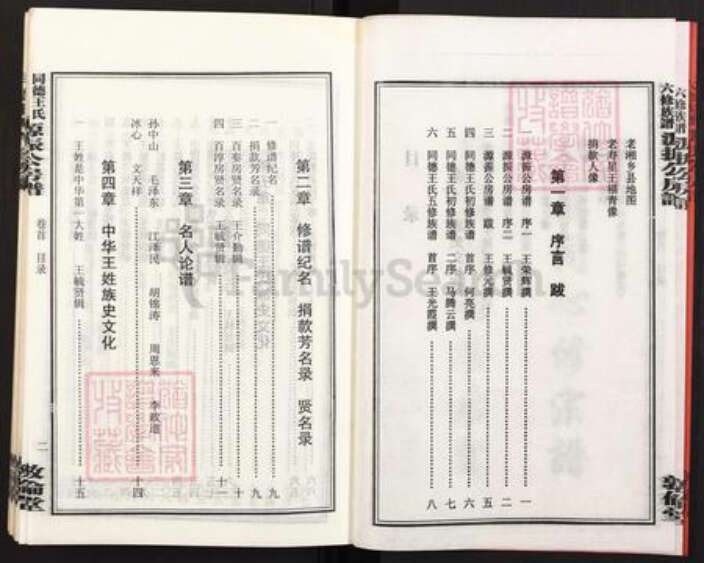 六修族谱
源振公房谱
敦伦堂
老湘乡县地图
老寿星王福青像
捐款人像
第一章 序言 跋
一 源振公房谱 序一 王荣辉撰 一
二 源振公房谱 序二 王毓贤撰 二
三 源振公房谱 跋 王修元撰 五
四 同德王氏初修族谱 首序 何亮撰 六
五 同德王氏初修族谱 二序 马腾云撰 七
六 同德王氏五修族谱 首序 王光霞撰 八
第二章 修谱纪名 捐款芳名录 贤名录
一 修谱纪名 九
二 捐款芳名录 九
三 百泰房贤名录 王介勋辑 十
四 百淳房贤名录 王毓贤辑 十一
第三章 名人论谱
孙中山 毛泽东 江泽民 胡锦涛 周恩来 李政道
冰心 文天祥 十四
第四章 中华王姓族史文化
一 王姓是中华第一大姓 王毓贤辑 十五
同德王氏
源振公房谱
卷首 目录
二
敦伦堂
FamilySearch